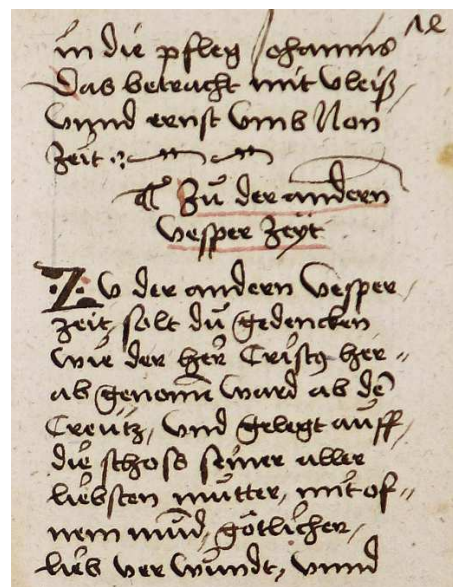 in die pfleg Johannis
Das betracht mit vleiß,
vnnd ernst vmb Non
Zeit
¶ Zů der andern
vesper Zeyt
Zv der andern vesper,
zeit, solt dů gedencken
wie der her Cristꝰ her-
ab genom̄ ward ab dē
Creütz, vnd gelegt auff,
die schoss seiner aller
liebsten můtter, mit of-
nem mūd, götlicher,
lieb ver wůndt, vnnd